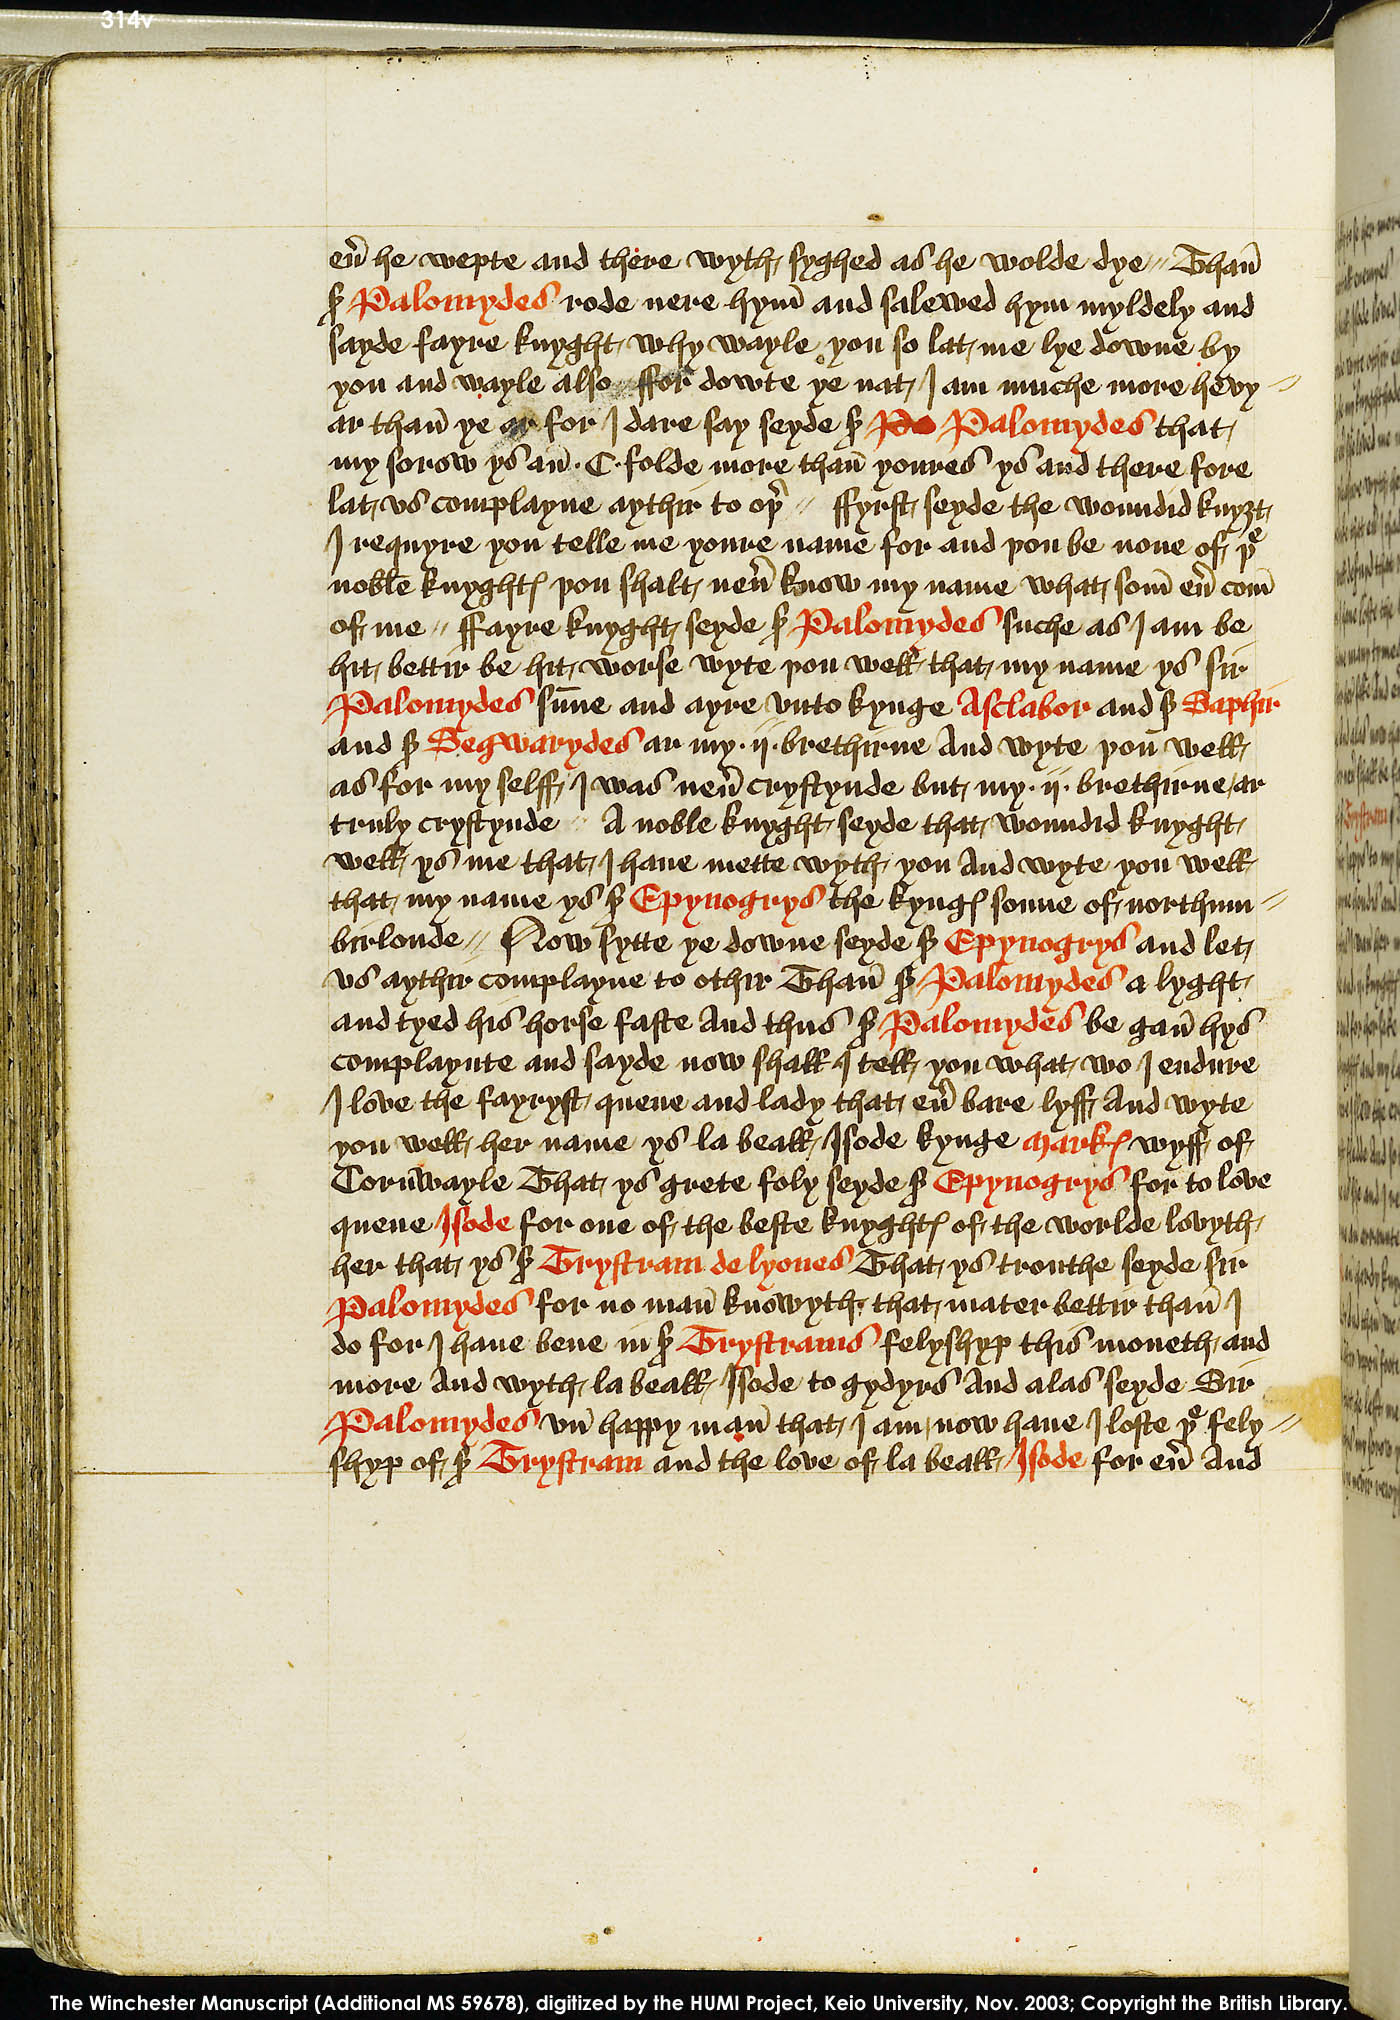 314v
eũ he wepte and there wyth syghed as he wolde dye // Thañ
ẜ Palomydes rode nere hym̃ and salewed hym myldely and
sayde fayre knyght why wayle you so lat me lye downe by
you and wayle also // ffor dowte ye nat I am muche more hevy //
ar thañ ye ar for I dare say seyde ẜ Palomydes that
my sorow ys añ · C · folde more thañ youres ys and there fore
lat vs complayne aythir to oþ̃ // ffyrst seyde the woundid knyȝt
I requyre you telle me youre name for and þou be none of þe
noble knyghtꝭ þou shalt neũ know my name what som̃ eũ com̃
of me // ffayre knyght seyde ẜ Palomydes suche as I am be
hit bettir be hit worse wyte þou well that my name ys sir
Palomydes suñe and ayre vnto kynge Asclabor and ẜ Saphir
and ẜ Segwarydes ar my · ij · brethirne And wyte þou well
as for my selff I was neũ crystynde but my · ij · brethirne ar
truly crystynde // A noble knyght seyde that woundid knyght
well ys me that I haue mette wyth you And wyte you well
that my name ys ẜ Epynogrys the kyngꝭ sonne of northum //
birlonde // Now sytte ye downe seyde ẜ Epynogrys and let
vs aythir complayne to othir Thañ ẜ Palomydes a lyght
and tyed his horse faste And thus ẜ Palomydes be gañ hys
complaynte and sayde now shall I tell you what wo I endure
I love the fayryst quene and lady that eũ bare lyff And wyte
you well her name ys la beall Isode kynge Markꝭ wyff of
Corñwayle That ys grete foly seyde ẜ Epynogrys for to love
quene Isode for one of the beste knyghtꝭ of the worlde lovyth
her that ys ẜ Trystram de lyones That ys trouthe seyde sir
Palomydes for no mañ knowyth that mater bettir thañ I
do for I haue bene in ẜ Trystrams felyshyp this moneth and
more And wyth la beall Isode to gydyrs And alas seyde Sir
Palomydes vñ happy mañ that I am now haue I loste þe fely //
shyp of ẜ Trystram and the love of la beall Isode for eũ And
The Winchester Manuscript (Additional MS 59678), digitized by the HUMI Project, Keio University, Nov. 2003; Copyright the British Library.